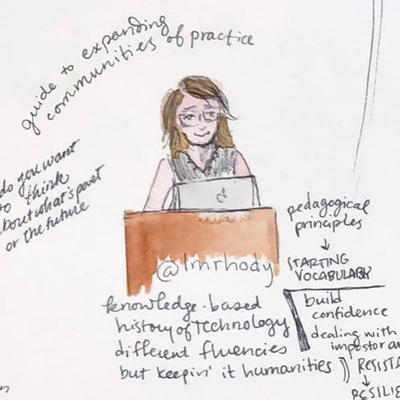 guide to expanding
communities of practice
do you want
to think
about what's past
or the future
@lmrhody
pedagogical
principles
STARTING
VOCABULARY
build
confidence
dealing with
impostor
knowledge-based
history of technology
different fluencies
but keepin' it humanities